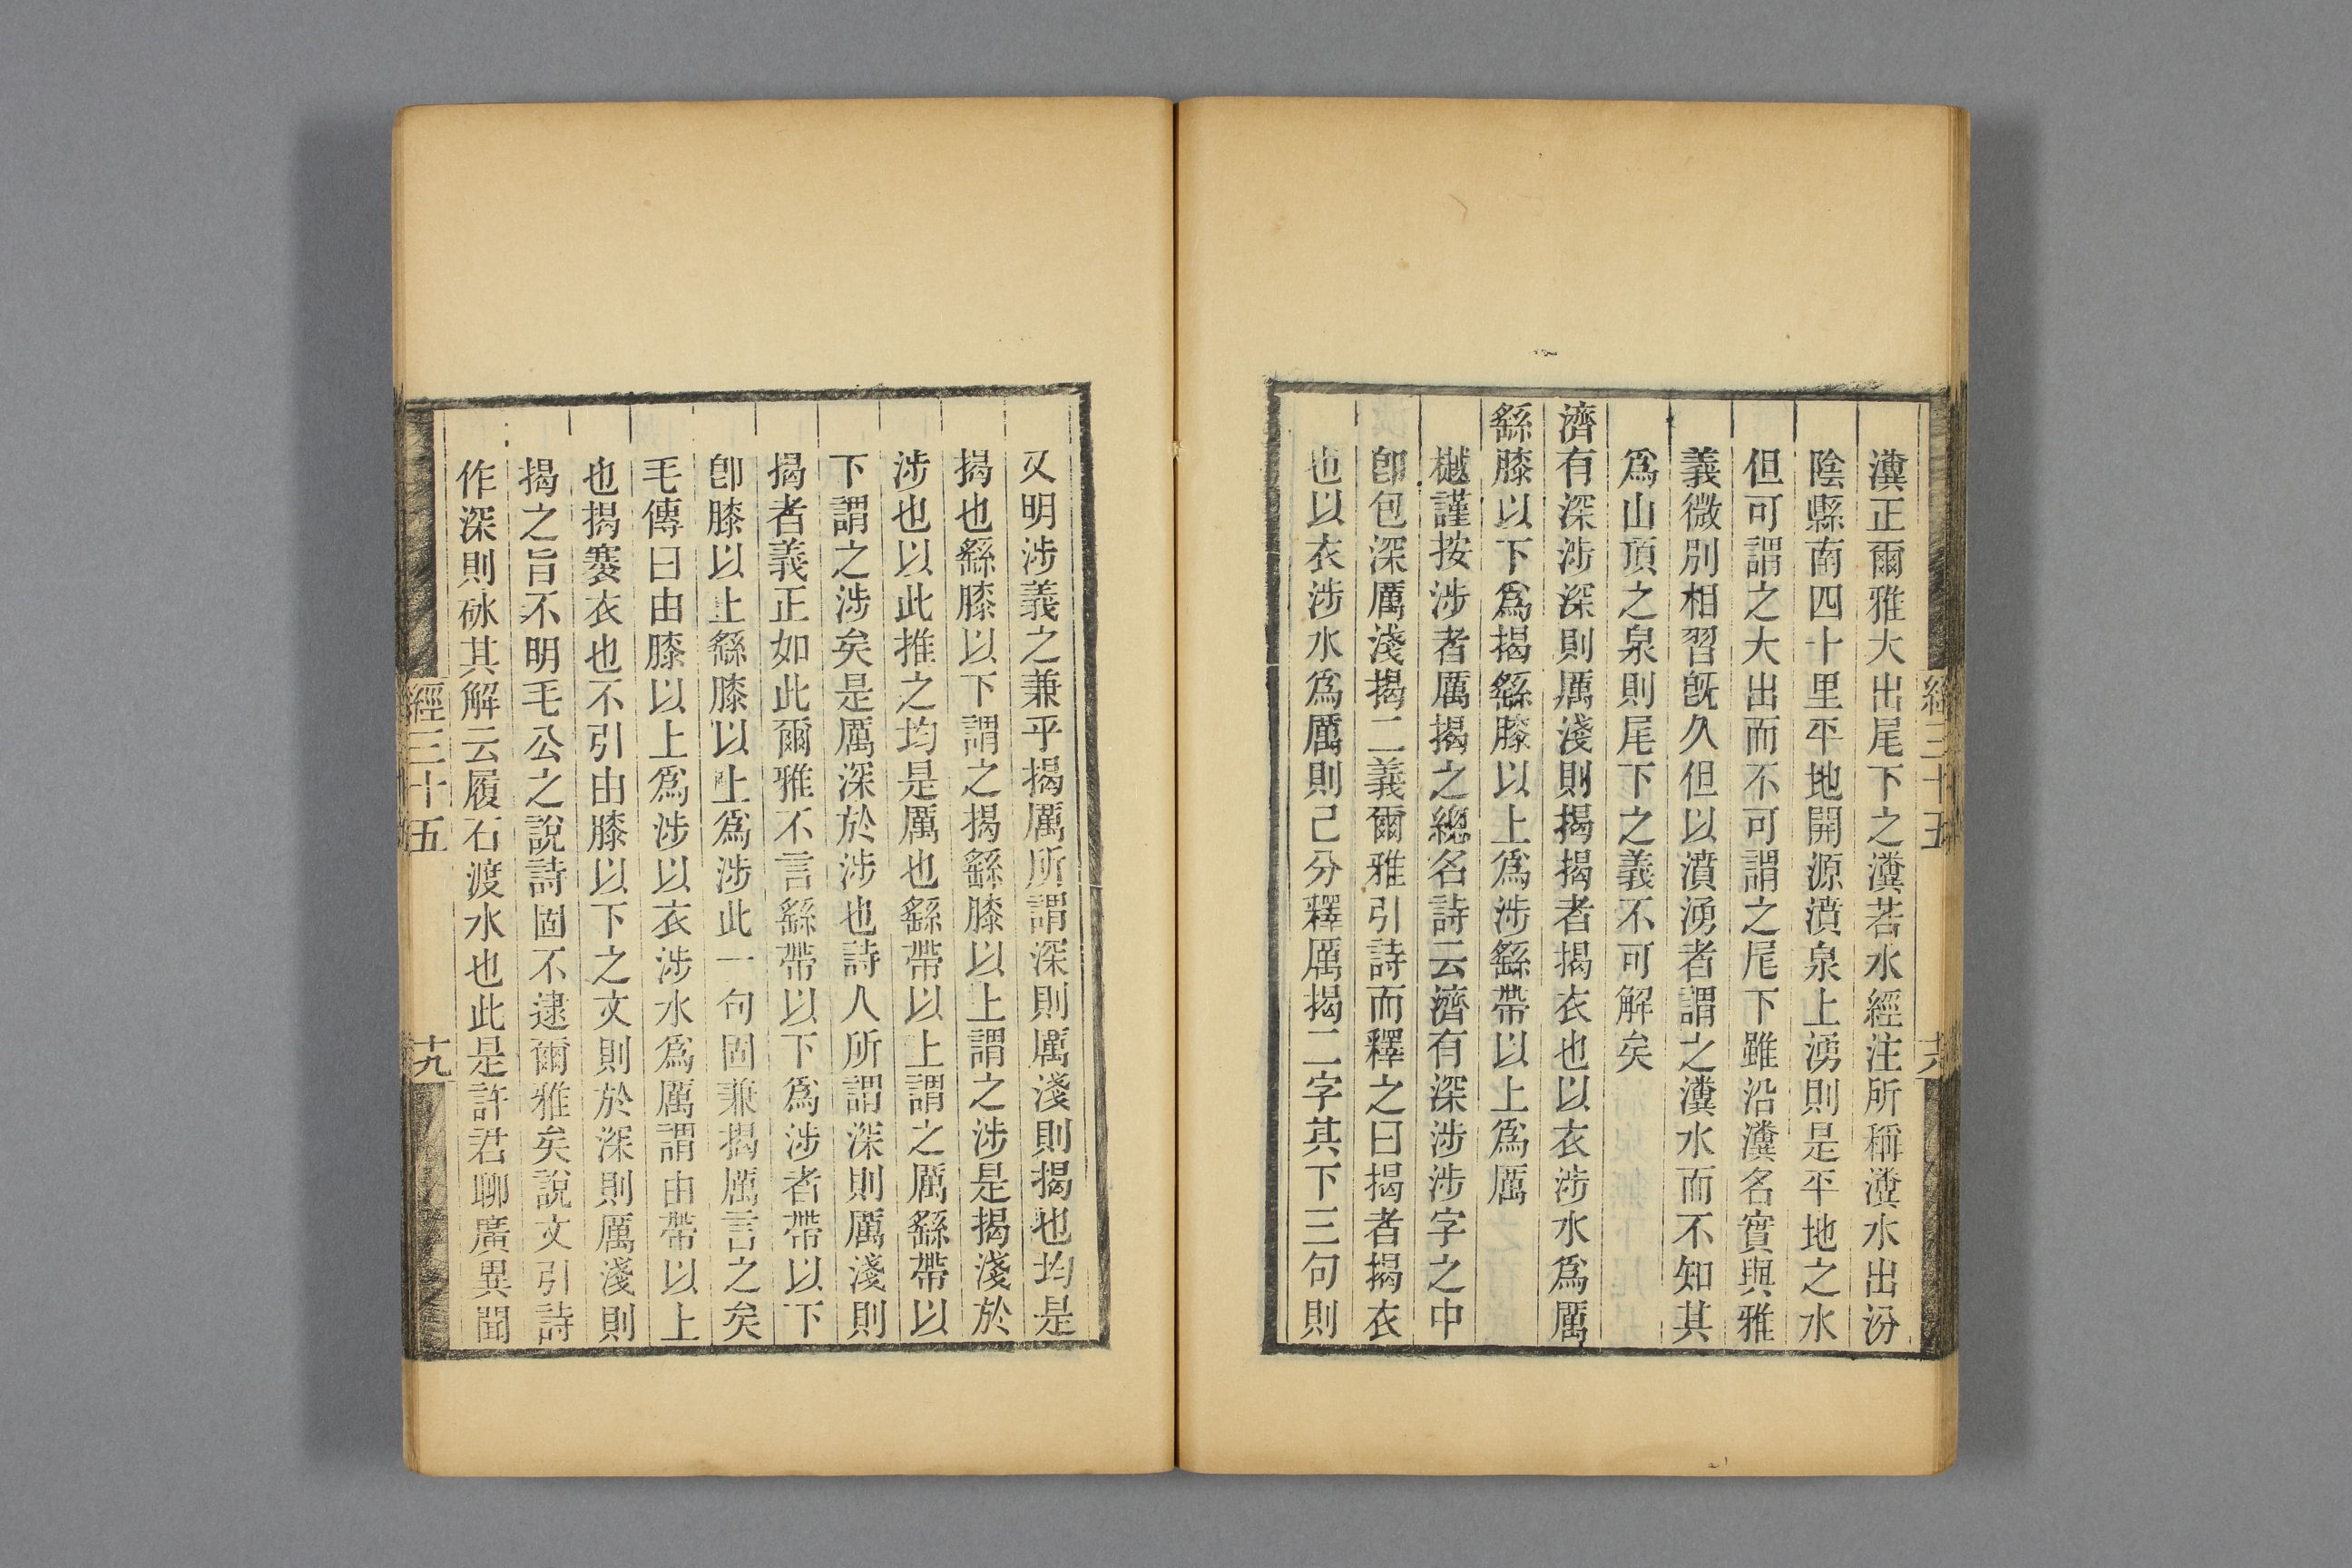 瀵正爾雅大出尾下之瀵若水經注所稱瀵水出汾
陰縣南四十里平地開源濆泉上湧則是平地之水
但可謂之大出而不可謂之尾下雖沿瀵名實與雅
義微別相習旣久但以濆湧者謂之瀵水而不知其
爲山頂之泉則尾下之義不可解矣
濟有深涉深則厲淺則揭揭者揭衣也以衣涉水爲厲
繇膝以下爲揭繇膝以上爲涉繇帶以上爲厲
樾謹按涉者厲揭之總名詩云濟有深涉涉字之中
卽包深厲淺揭二義爾雅引詩而釋之曰揭者揭衣
也以衣涉水爲厲則已分釋厲揭二字其下三句則
經三十五
又明涉義之兼乎揭厲所謂深則厲淺則揭也均是
揭也繇膝以下謂之揭繇膝以上謂之涉是揭淺於
涉也以此推之均是厲也繇帶以上謂之厲繇帶以
下謂之涉矣是厲深於涉也詩人所謂深則厲淺則
揭者義正如此爾雅不言繇帶以下爲涉者帶以下
卽膝以上繇膝以上爲涉此一句固兼揭厲言之矣
毛傳曰由膝以上爲涉以衣涉水爲厲謂由帶以上
也揭褰衣也不引由膝以下之文則於深則厲淺則
揭之旨不明毛公之說詩固不逮爾雅矣說文引詩
作深則砅其解云履石渡水也此是許君聊廣異聞
經三十五
十九